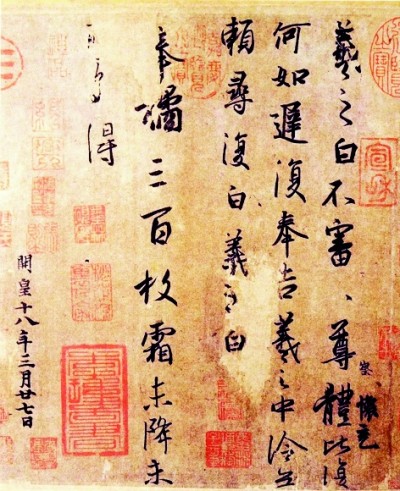 羲之白不審、尊體比復
何如遲復奉告羲之中冷無
賴尋復白羲之白
奉橘三百枚霜未降未
可多得
開皇十八年三月廿七日
察 懷充
宣和